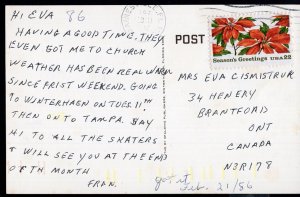 HI EVA 86
HAVING A GOOD TIME. THEY
EVEN GOT ME TO CHURCH
WEATHER HAS BEEN REAL WARM
SINCE FRIST WEEKEND. GOING
TO WINTERHAGN ON TUES 11TH
THEN ON TO TAMPA. BAY
HI TO ALL THE SKATERS
& WILL SEE YOU AT THE END
OF TH MONTH
FRAN.
POST
Season's Greetings USA 22
MRS EVA CISMISTRUK
34 HENERY
BRANTFORD
ONT
CANADA
N3R178
got it
Feb. 21/86